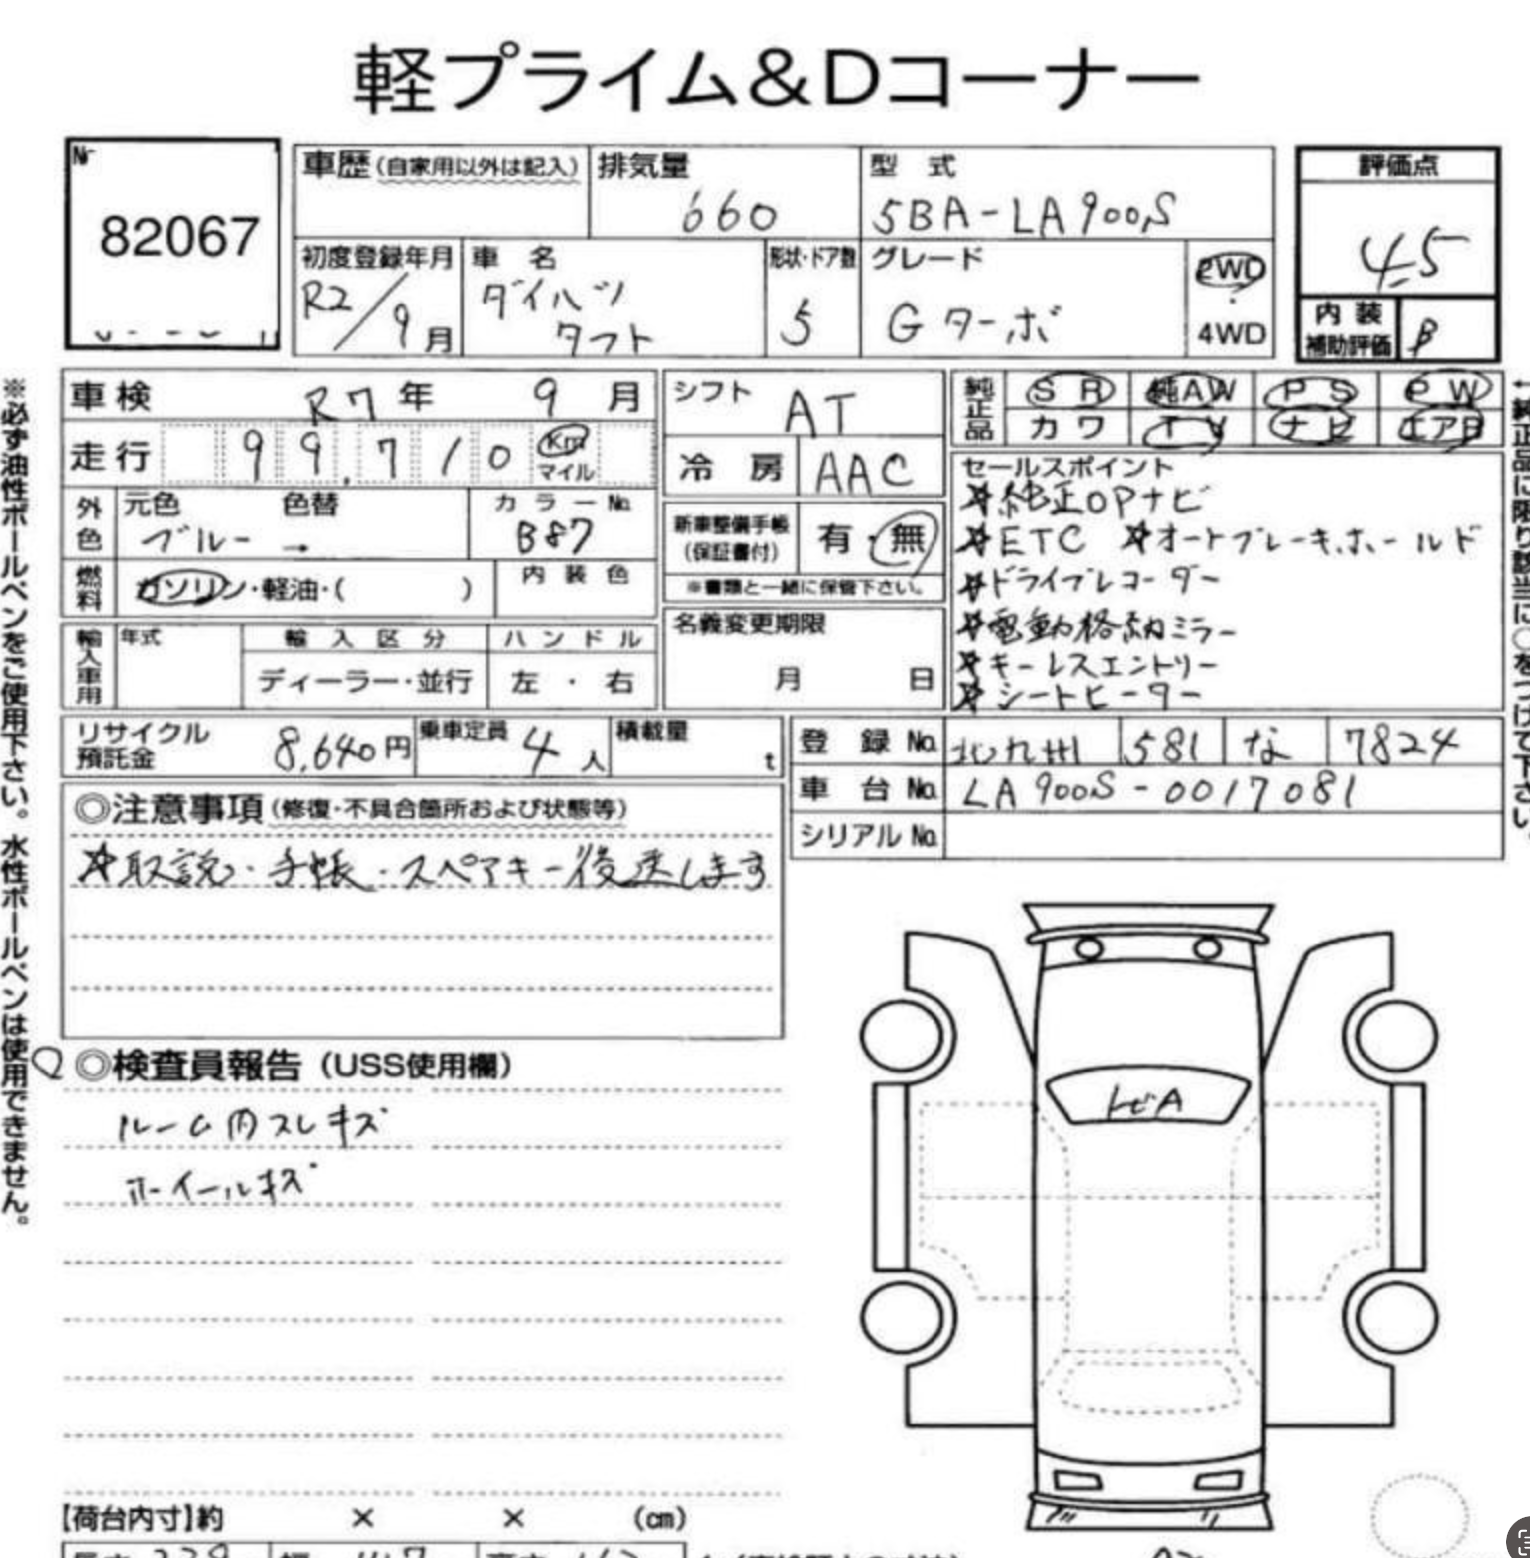 軽プライム&Dコーナー
№
82067
車歴(自家用以外は記入)
排気量
660
型式
5BA-LA900S
評価点
4.5
初度登録年月
R2/9月
車名
ダイハツ
タフト
形状・ドア数
5
グレード
Gターボ
2WD
・
4WD
内装
補助評価
B
車検 R7年 9月
シフト AT
純正品
SR 純AW PS PW
カワ TV ナビ エアB
走行 99,710 Km
マイル
冷房 AAC
セールスポイント
☆純正OPナビ
☆ETC ☆オートブレーキホールド
☆ドライブレコーダー
☆電動格納ミラー
☆キーレスエントリー
☆シートヒーター
外色
元色 色替
ブルー →
カラーNo.
B87
新車整備手帳
(保証書付)
有・無
※書類と一緒に保管下さい。
燃料
ガソリン・軽油・( )
内装色
名義変更期限
月 日
輸入車用
年式
輸入区分
ディーラー・並行
ハンドル
左・右
リサイクル
預託金
8,640円
乗車定員
4人
積載量
t
登録No. 北九州 581 な 7824
車台No. LA900S-0017081
シリアルNo.
◎注意事項(修復・不具合箇所および状態等)
☆取説・手帳・スペアキー後送します
◎検査員報告(USS使用欄)
ルーム内スレキズ
ホイールキズ
トビA
【荷台内寸】約 × × (cm)
※必ず油性ボールペンをご使用下さい。水性ボールペンは使用できません。
↑純正品に限り該当に○をつけて下さい。